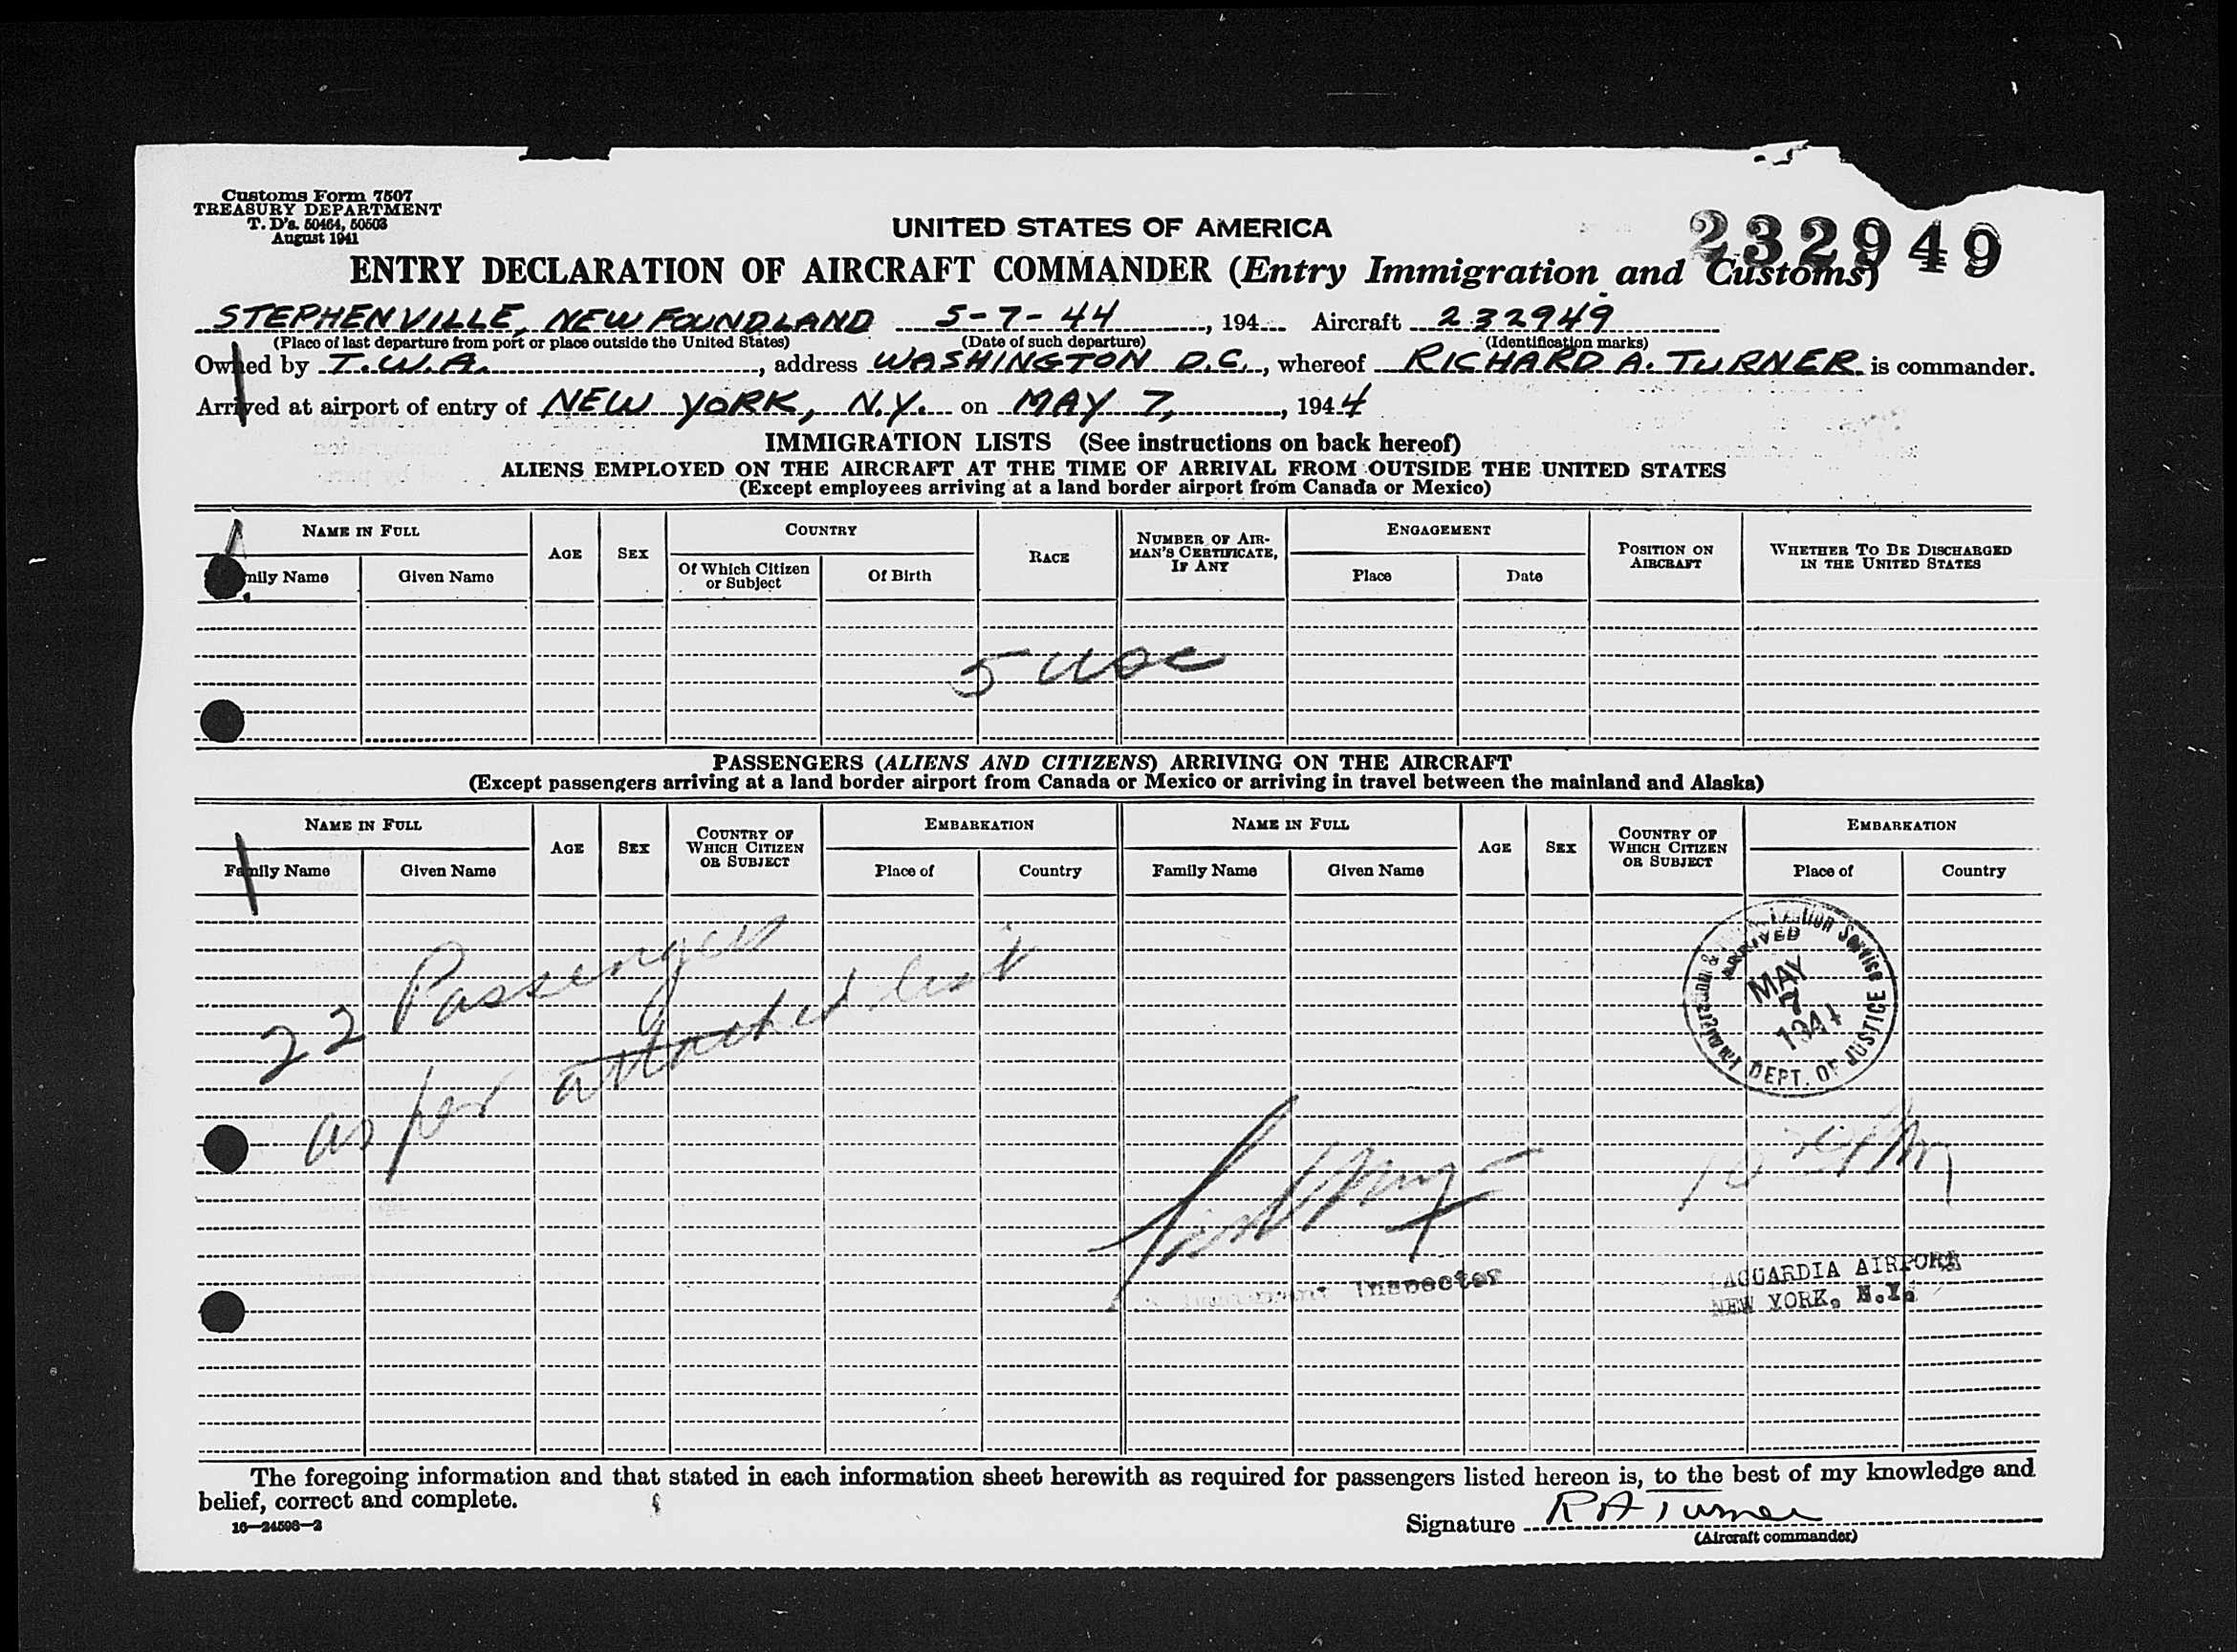 Customs Form 7507
TREASURY DEPARTMENT
T. D's. 50464, 50503
August 1941
232949
UNITED STATES OF AMERICA
ENTRY DECLARATION OF AIRCRAFT COMMANDER (Entry Immigration and Customs)
STEPHENVILLE, NEWFOUNDLAND 5-7-44, 194 Aircraft 232949
(Place of last departure from port or place outside the United States) (Date of such departure) (Identification marks)
Owned by T.W.A., address WASHINGTON D.C., whereof RICHARD A. TURNER is commander.
Arrived at airport of entry of NEW YORK, N.Y. on MAY 7, 1944
IMMIGRATION LISTS (See instructions on back hereof)
ALIENS EMPLOYED ON THE AIRCRAFT AT THE TIME OF ARRIVAL FROM OUTSIDE THE UNITED STATES
(Except employees arriving at a land border airport from Canada or Mexico)
NAME IN FULL AGE SEX COUNTRY RACE NUMBER OF AIRMAN'S CERTIFICATE, IF ANY ENGAGEMENT POSITION ON AIRCRAFT WHETHER TO BE DISCHARGED IN THE UNITED STATES
Family Name Given Name Of Which Citizen or Subject Of Birth Place Date
5 USC
PASSENGERS (ALIENS AND CITIZENS) ARRIVING ON THE AIRCRAFT
(Except passengers arriving at a land border airport from Canada or Mexico or arriving in travel between the mainland and Alaska)
NAME IN FULL AGE SEX COUNTRY OF WHICH CITIZEN OR SUBJECT EMBARKATION NAME IN FULL AGE SEX COUNTRY OF WHICH CITIZEN OR SUBJECT EMBARKATION
Family Name Given Name Place of Country Family Name Given Name Place of Country
22 Passengers
as per attached list
Immigration & Service
ARRIVED
MAY
7
1944
DEPT. OF JUSTICE
Immigrant Inspector
LAGUARDIA AIRPORT
NEW YORK, N.Y.
The foregoing information and that stated in each information sheet herewith as required for passengers listed hereon is, to the best of my knowledge and
belief, correct and complete.
16—24598-2
Signature R A Turner
(Aircraft commander)